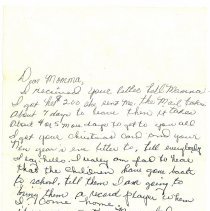 Dear Momma,
I received your letter tell Momma
I got her $200 she sent me. the Mail takes
about 7 days to leave there it takes
about 4 or 5 more days to get to you all
I got your Christmas Card and your
New year's one letter to, tell everybody
I say hello I really am glad to hear
that the children have gone back
to school, tell them I am going to
bring them a record player when
I come home